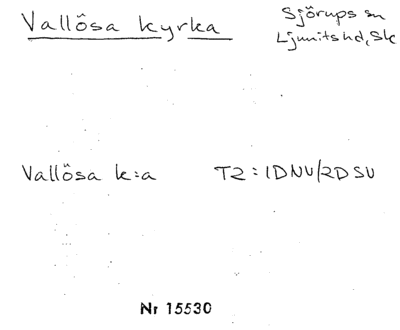 Vallösa kyrka
Sjörups sn
Ljunits hd, Sk
Vallösa k:a T2 = 1DNV/2DSV
Nr 15530